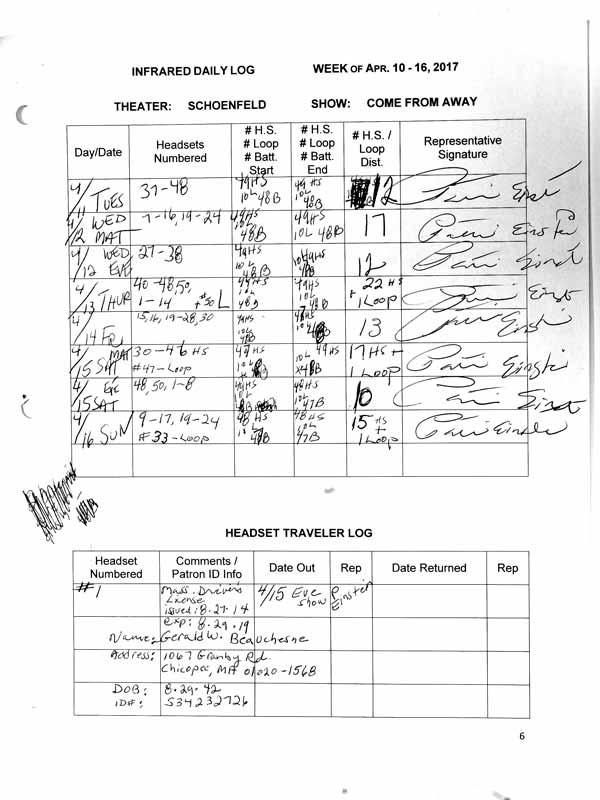 INFRARED DAILY LOG WEEK OF APR. 10 - 16, 2017
THEATER: SCHOENFELD SHOW: COME FROM AWAY
Day/Date Headsets Numbered # H.S. # Loop # Batt. Start # H.S. # Loop # Batt. End # H.S. / Loop Dist. Representative Signature
4/11 TUES 37-48 49HS 10L 48B 49 HS 10L 48B 12
4/12 WED MAT 7-16, 19-24 49HS 10L 48B 49HS 10L 48B 17
4/12 WED EVE 27-38 49HS 10L 48B 12
4/13 THUR 40-48, 50, 1-14 + #50 L 49HS 10L 49HS 10L 22 HS + 1 Loop
4/14 Fri 15, 16, 19-28, 30 13
4/15 SAT MAT 30-46 HS #47-Loop 49 HS 10L 49HS 17 HS + 1 Loop
4/15 SAT Eve 48, 50, 1-8 49HS 10L 48HS 10L 47B 10
4/16 SUN 9-17, 19-24 #33-Loop 48 HS 48B 48HS 10L 47B 15 HS + 1 Loop
HEADSET TRAVELER LOG
Headset Numbered Comments / Patron ID Info Date Out Rep Date Returned Rep
#1 Mass. Driver's License issued: 8-27-14 4/15 Eve show P Einstein
exp: 8-29-19
Name: Gerald W. Beauchesne
Address: 1067 Granby Rd.
Chicopee, MA 01020-1568
DOB: 8-29-42
ID#: S34232726
6